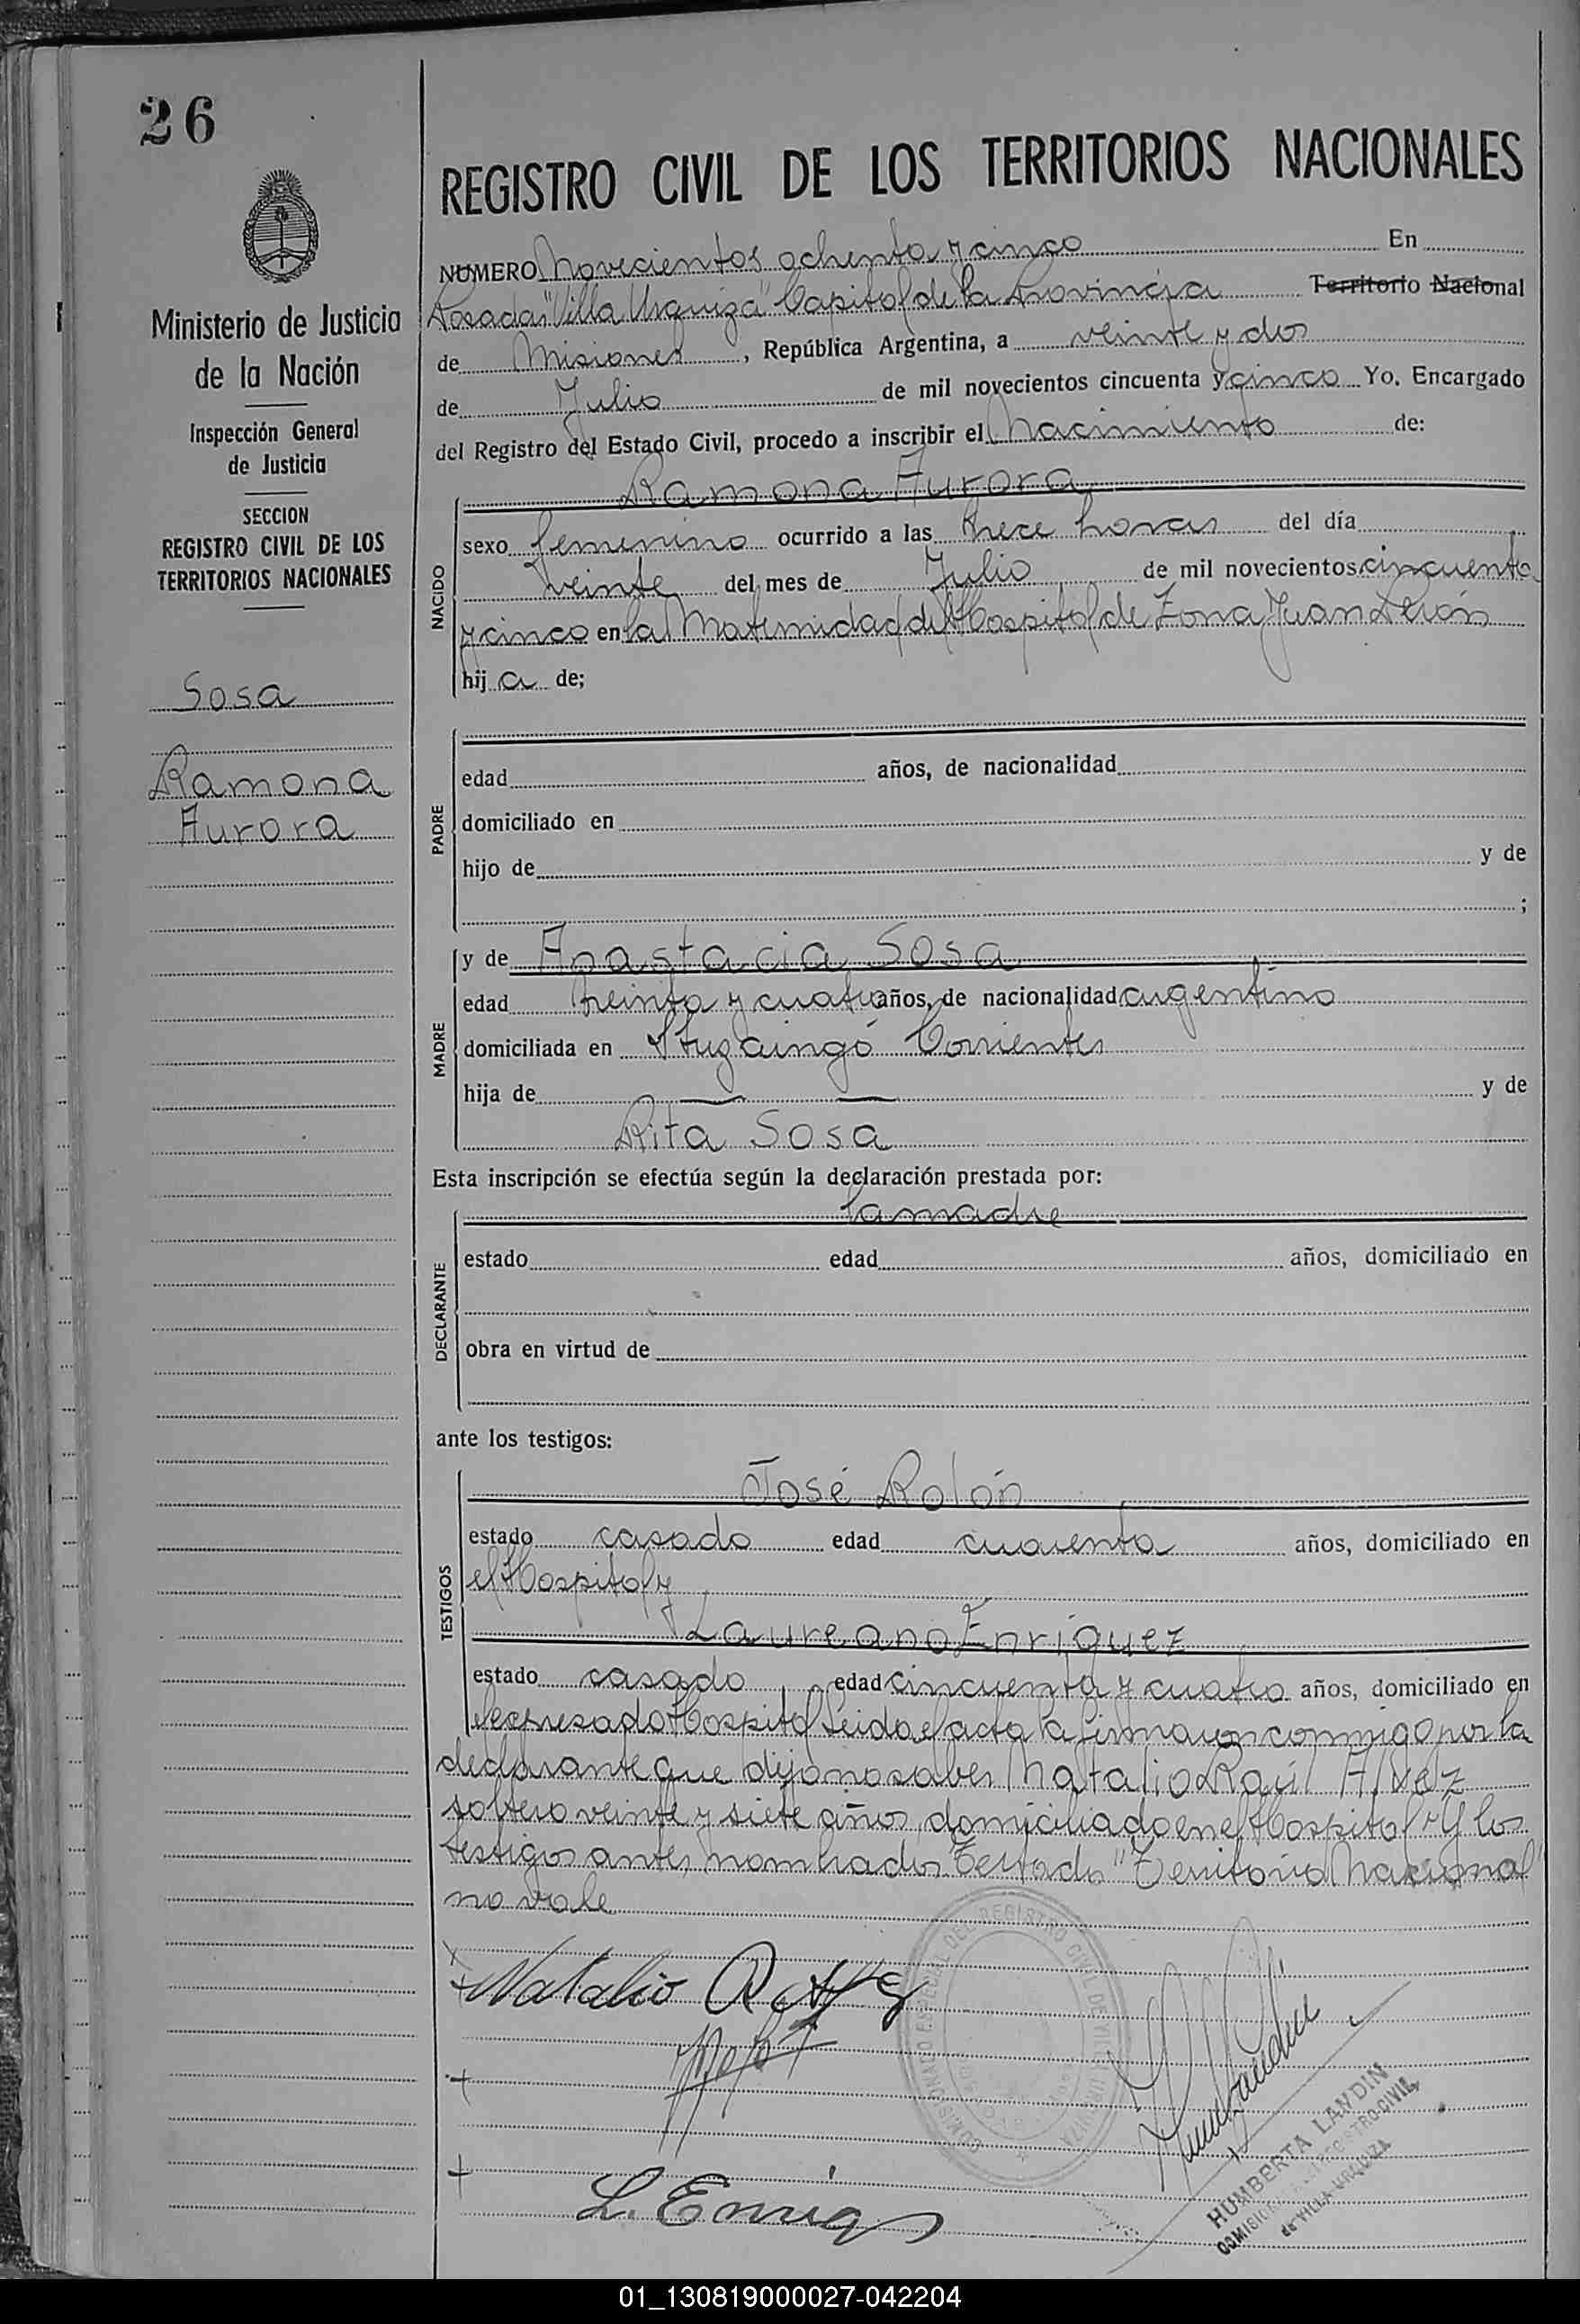 26
REGISTRO CIVIL DE LOS TERRITORIOS NACIONALES
Ministerio de Justicia
de la Nación
Inspección General
de Justicia
SECCION
REGISTRO CIVIL DE LOS
TERRITORIOS NACIONALES
Sosa
Ramona
Aurora
NUMERO Novecientos ochenta y cinco En
Posadas "Villa Urquiza" Capital de la Provincia Territorio Nacional
de Misiones, República Argentina, a veinte y dos
de Julio de mil novecientos cincuenta y cinco Yo, Encargado
del Registro del Estado Civil, procedo a inscribir el Nacimiento de:
NACIDO
Ramona Aurora
sexo femenino ocurrido a las trece horas del día
veinte del mes de Julio de mil novecientos cincuenta
y cinco en la Maternidad del Hospital de Zona Juan Perón
hij a de;
PADRE
edad años, de nacionalidad
domiciliado en
hijo de y de
;
MADRE
y de Anastacia Sosa
edad treinta y cuatro años, de nacionalidad argentina
domiciliada en Ituzaingó Corrientes
hija de — — y de
Rita Sosa
Esta inscripción se efectúa según la declaración prestada por:
DECLARANTE
la madre
estado edad años, domiciliado en
obra en virtud de
ante los testigos:
TESTIGOS
José Rolón
estado casado edad cuarenta años, domiciliado en
el Hospital y
Laureano Enriquez
estado casado edad cincuenta y cuatro años, domiciliado en
el expresado Hospital Leida el acta la firmaron conmigo por la
declarante que dijo no saber Natalio Raúl Alvez
soltero veinte y siete años, domiciliado en el Hospital Y los
testigos antes nombrados Testado "Territorio Nacional"
no vale
Natalio R
L. Enriq
COMISIONADO ESPECIAL DEL REGISTRO CIVIL DE VILLA URQUIZA
HUMBERTA LANDIN
COMISIONADA REGISTRO CIVIL
de VILLA URQUIZA
01_130819000027-042204